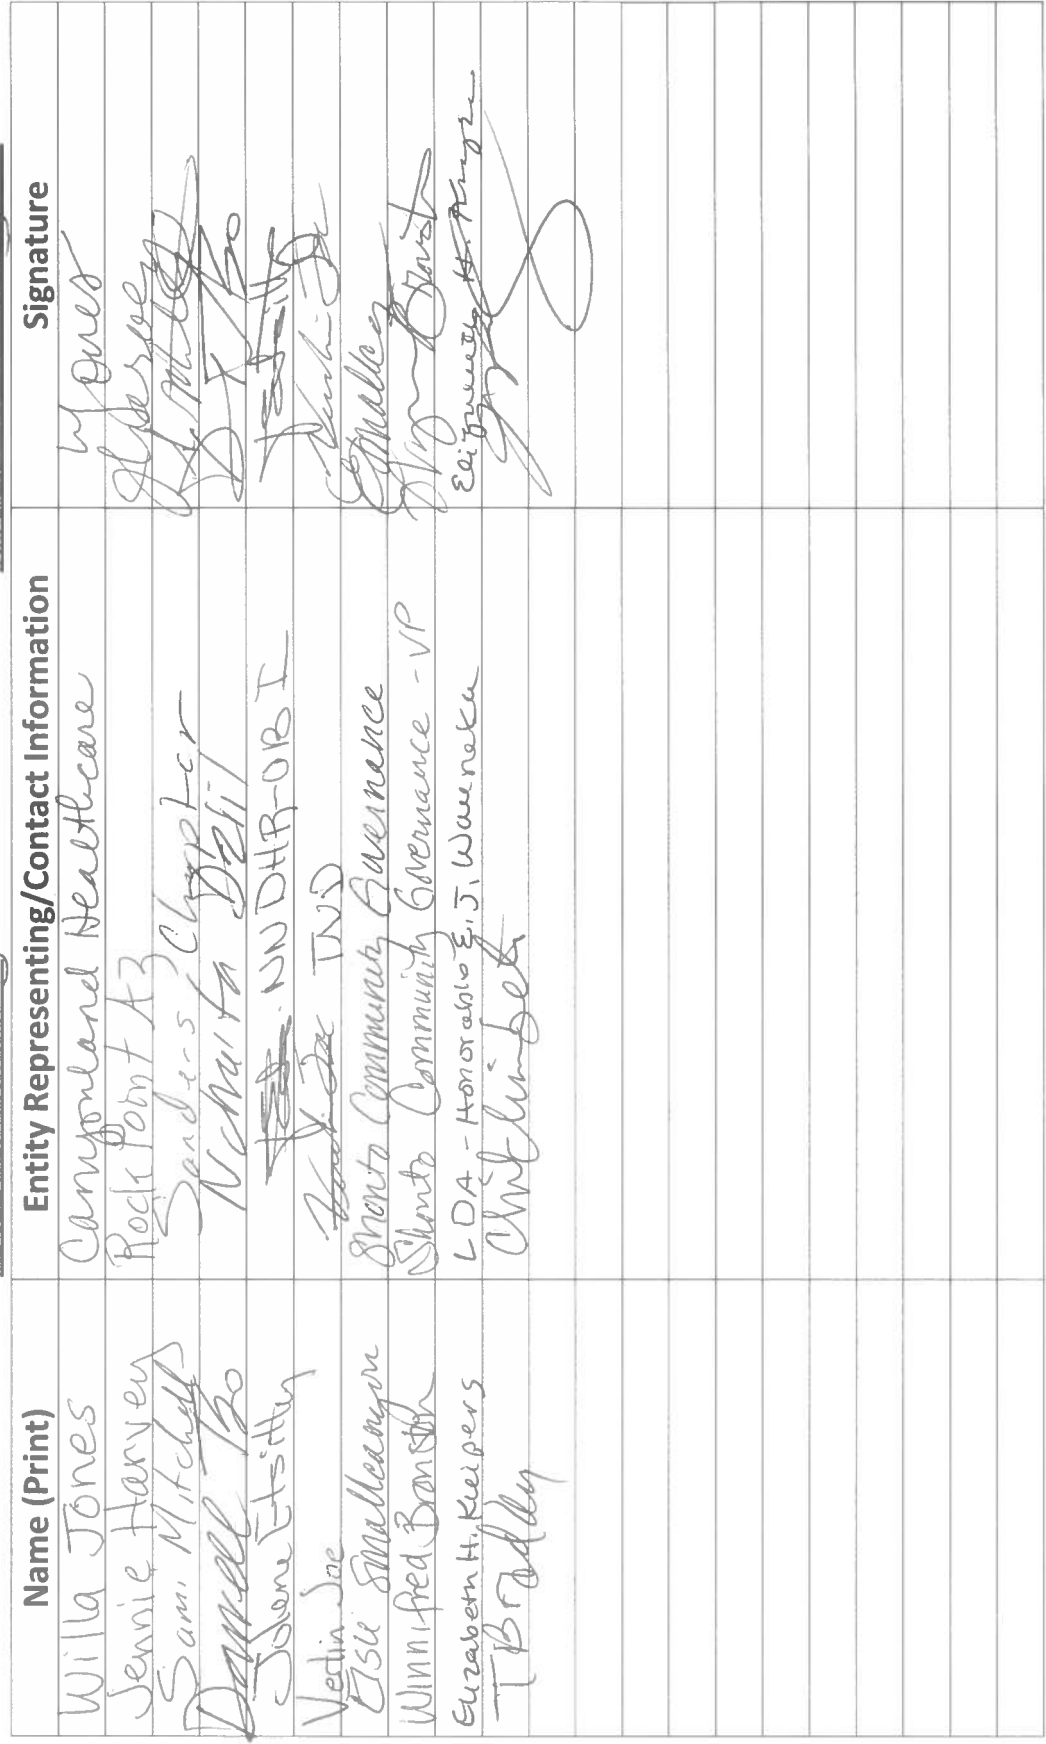 Name (Print) Entity Representing/Contact Information Signature
Willa Jones Canyonland Healthcare WJones
Jennie Harvey Rock Point AZ JHarvey
Sam Mitchell Sanders Chapter
Darrell Tso Nahata Dziil D Tso
Jolene Etsitty NNDHR-OBI
Verlin Joe TND
Elsie Smallcanyon Shonto Community Governance
Winnifred Bronston Shonto Community Governance - VP
Elizabeth H. Kuipers LDA - Honorable E.J. Wauneka
T Bradley Chilchinbeto